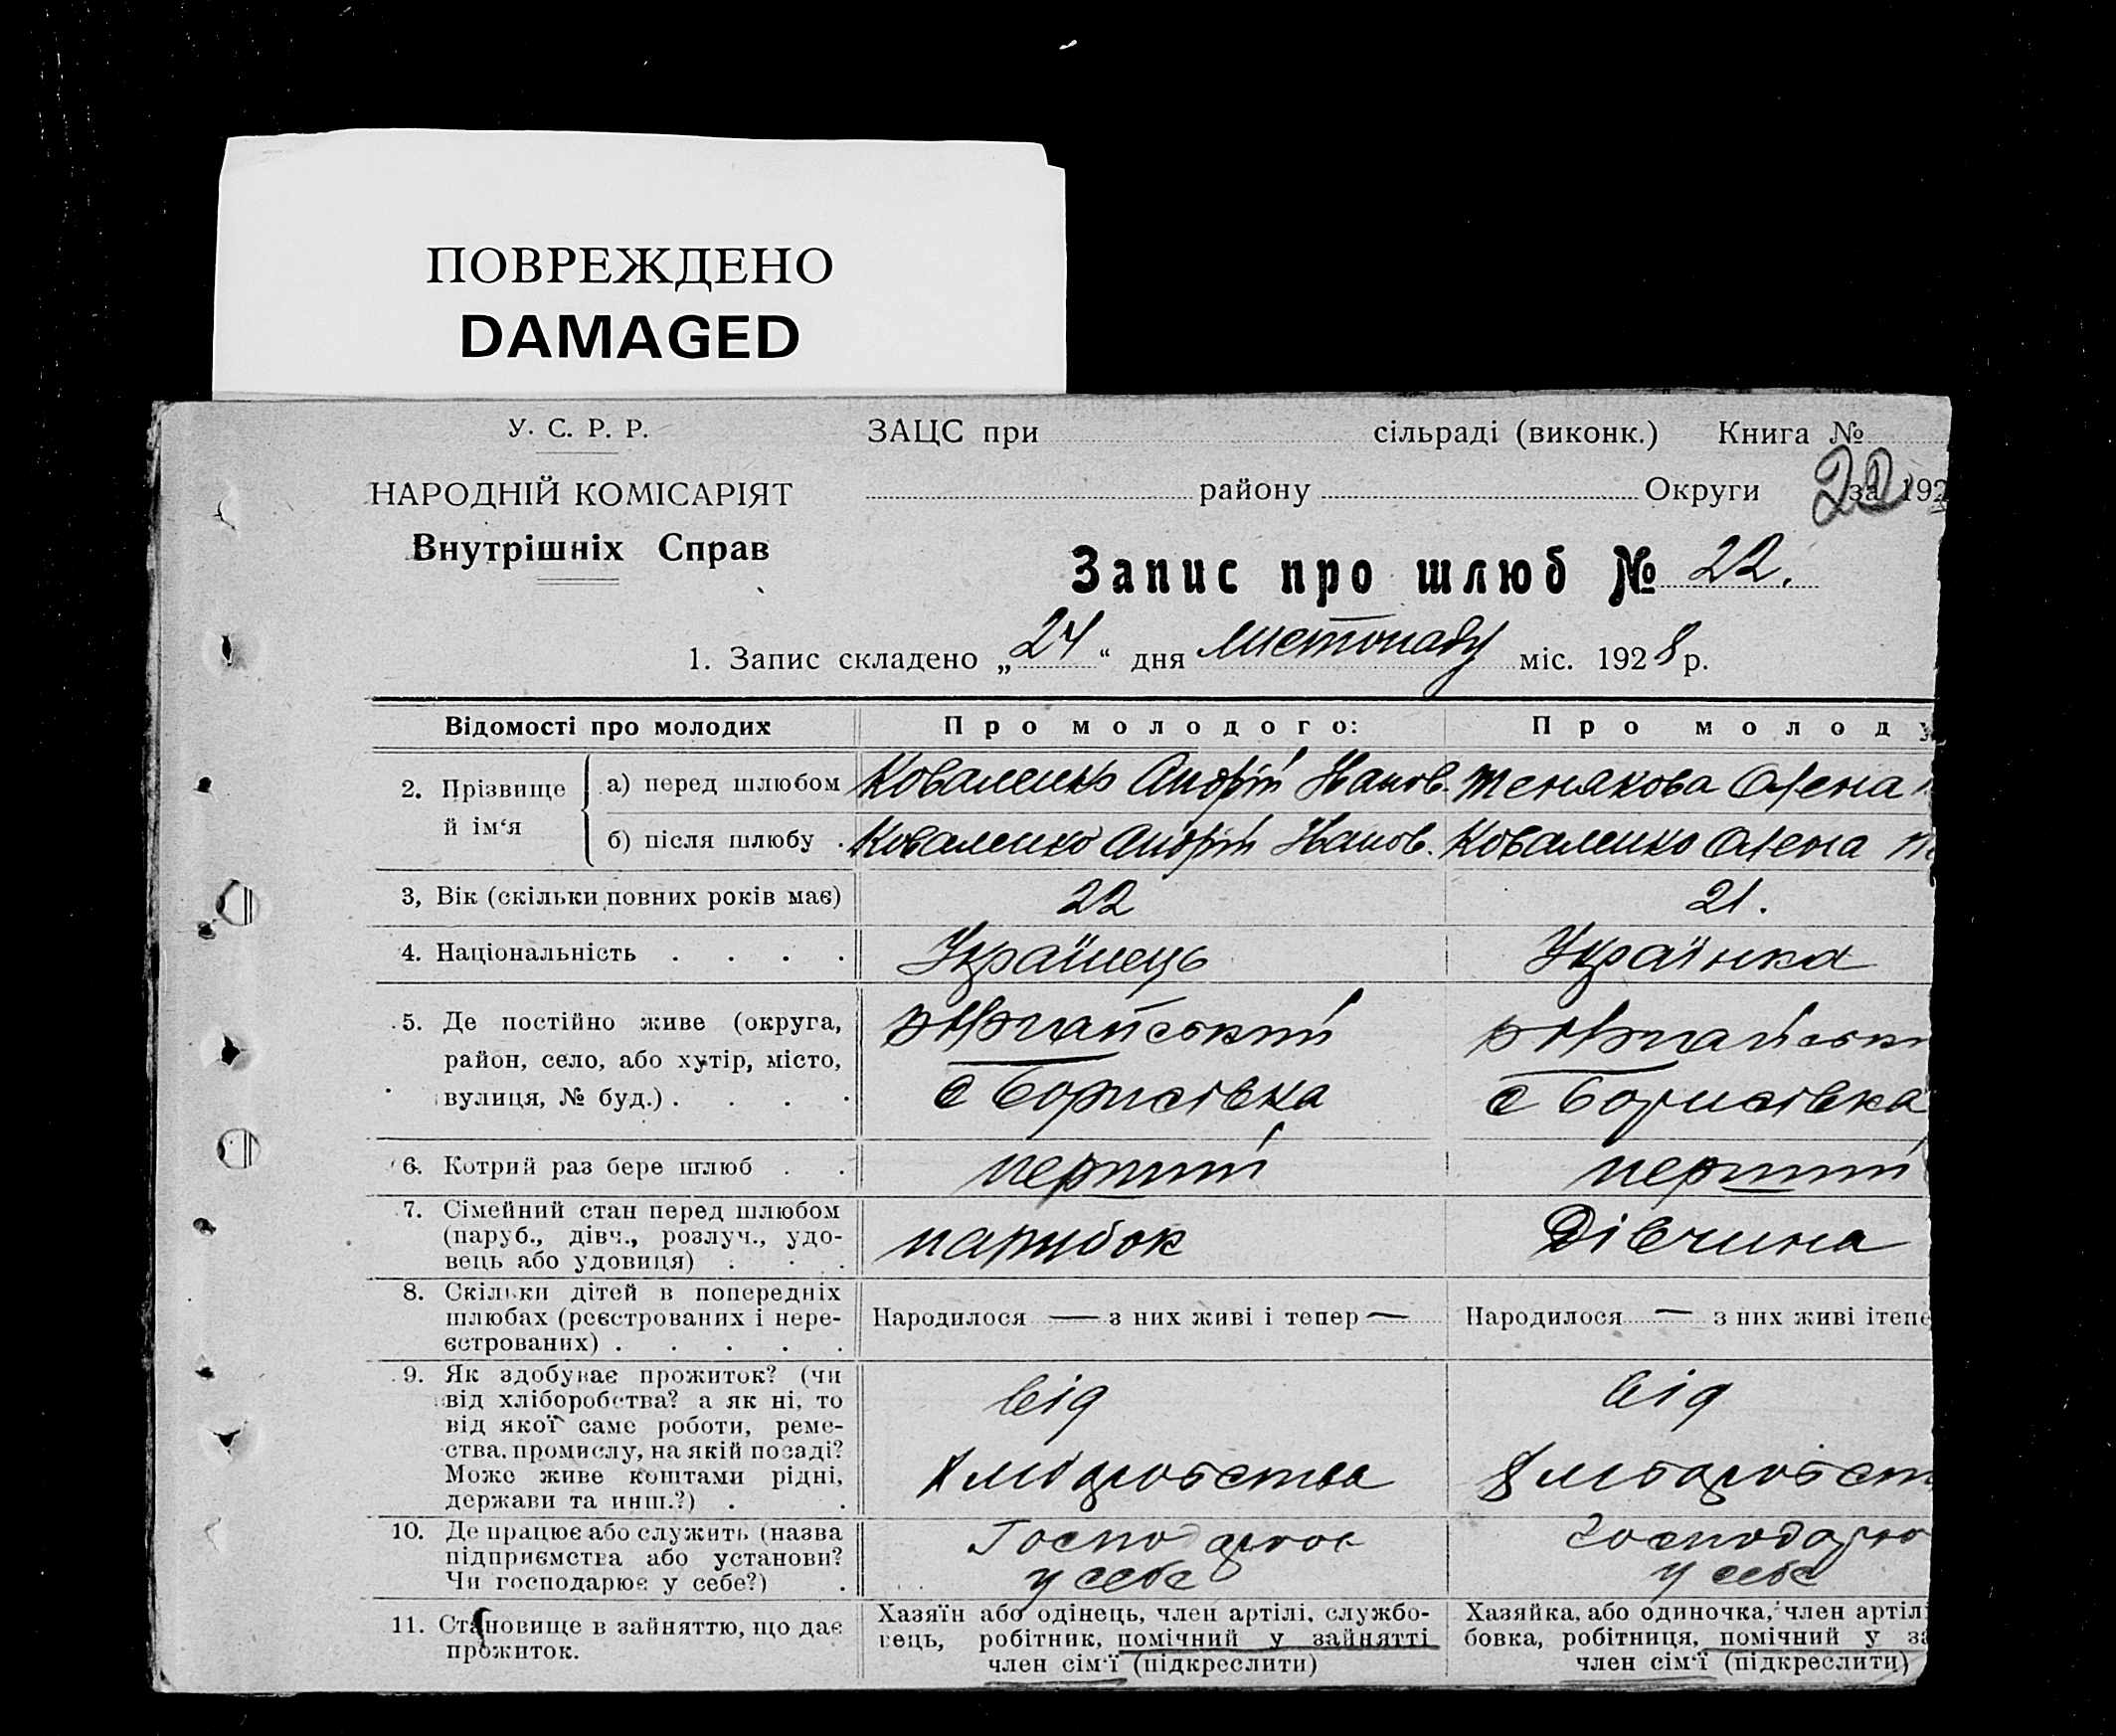 ПОВРЕЖДЕНО
DAMAGED
У. С. Р. Р.
НАРОДНІЙ КОМІСАРІЯТ
Внутрішніх Справ
ЗАЦС при сільраді (виконк.) Книга №
району Округи за 192
22
Запис про шлюб № 22.
1. Запис складено „24“ дня листопаду міс. 1928 р.
Відомості про молодих Про молодого: Про молоду
2. Прізвище й ім‘я
а) перед шлюбом Коваленко Андрій Іванов. Тенякова Олена
б) після шлюбу Коваленко Андрій Іванов. Коваленко Олена
3, Вік (скільки повних років має) 22 21.
4. Національність Українець Українка
5. Де постійно живе (округа,
район, село, або хутір, місто,
вулиця, № буд.)
с Борисівка с Борисівка
6. Котрий раз бере шлюб перший перший
7. Сімейний стан перед шлюбом
(паруб., дівч., розлуч., удо-
вець або удовиця) парубок Дівчина
8. Скільки дітей в попередніх
шлюбах (реєстрованих і нере-
єстрованих)
Народилося — з них живі і тепер — Народилося — з них живі ітепе
9. Як здобуває прожиток? (чи
від хліборобства? а як ні, то
від якої саме роботи, реме-
ства, промислу, на якій посаді?
Може живе коштами рідні,
держави та инш.?)
від від
хліборобства хліборобст
10. Де працює або служить (назва
підприємства або установи?
Чи господарює у себе?)
Господарює господарю
у себе у себе
11. Становище в зайняттю, що дає
прожиток.
Хазяїн або одінець, член артілі, службо-
вець, робітник, помічний у зайнятті
член сім‘ї (підкреслити)
Хазяйка, або одиночка, член артіл
бовка, робітниця, помічний у за
член сім‘ї (підкреслити)